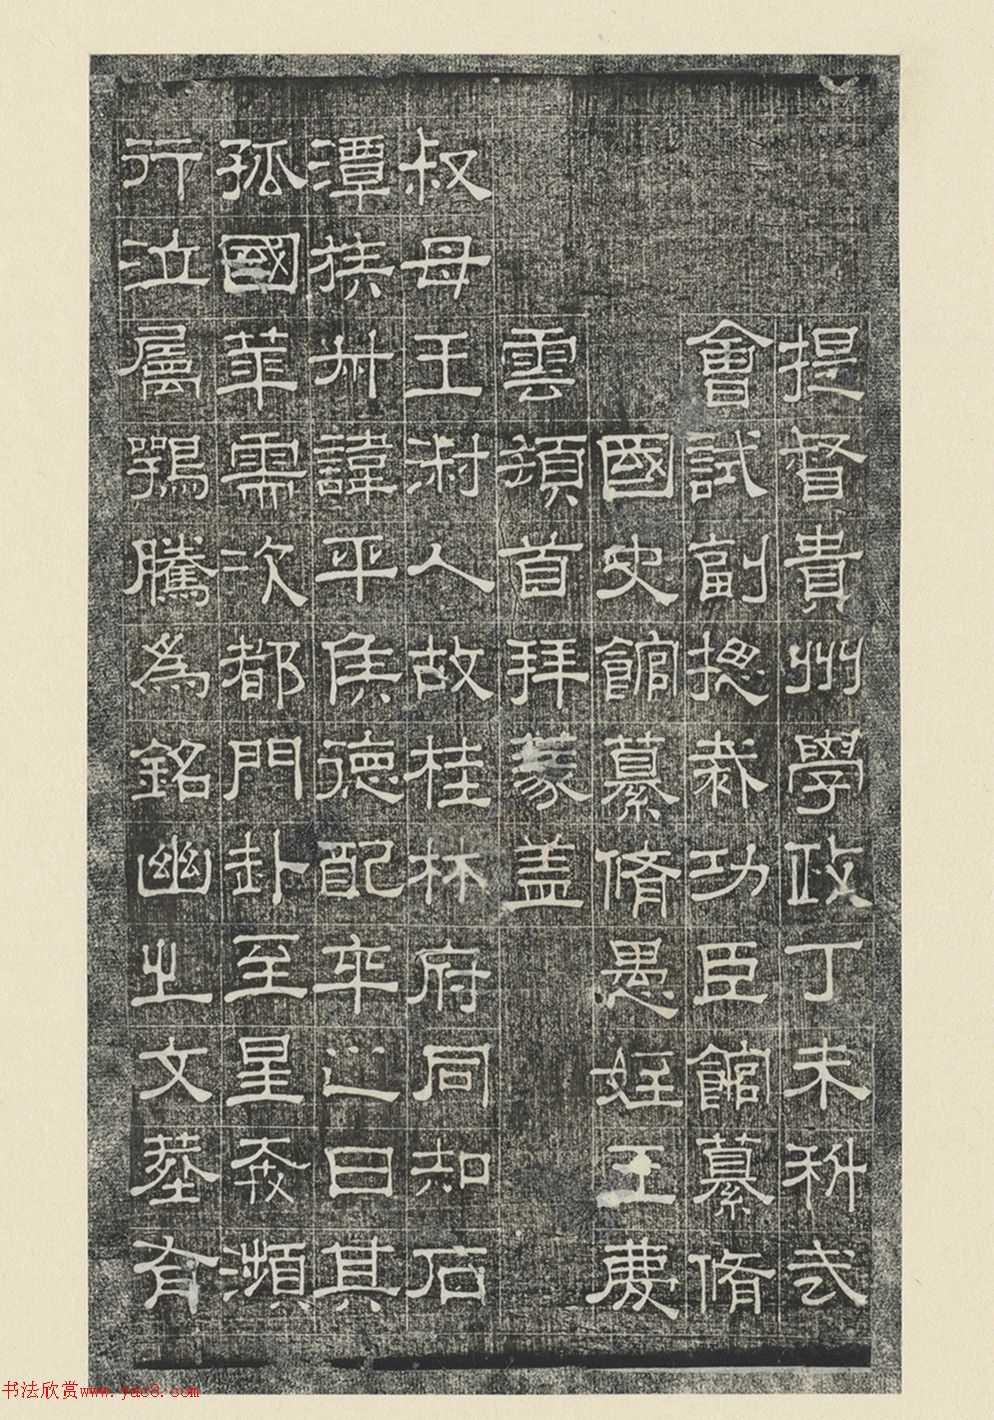 提督貴州學政丁未科武
會試副摠裁功臣館纂脩
國史館纂脩愚姪王慶
雲頓首拜篆蓋
叔母王淑人故桂林府同知石
潭族州諱平侯德配卒之日其
孤國華需次都門訃至星奔瀕
行泣屬鶚騰為銘幽之文葬有
书法欣赏www.yac8.com